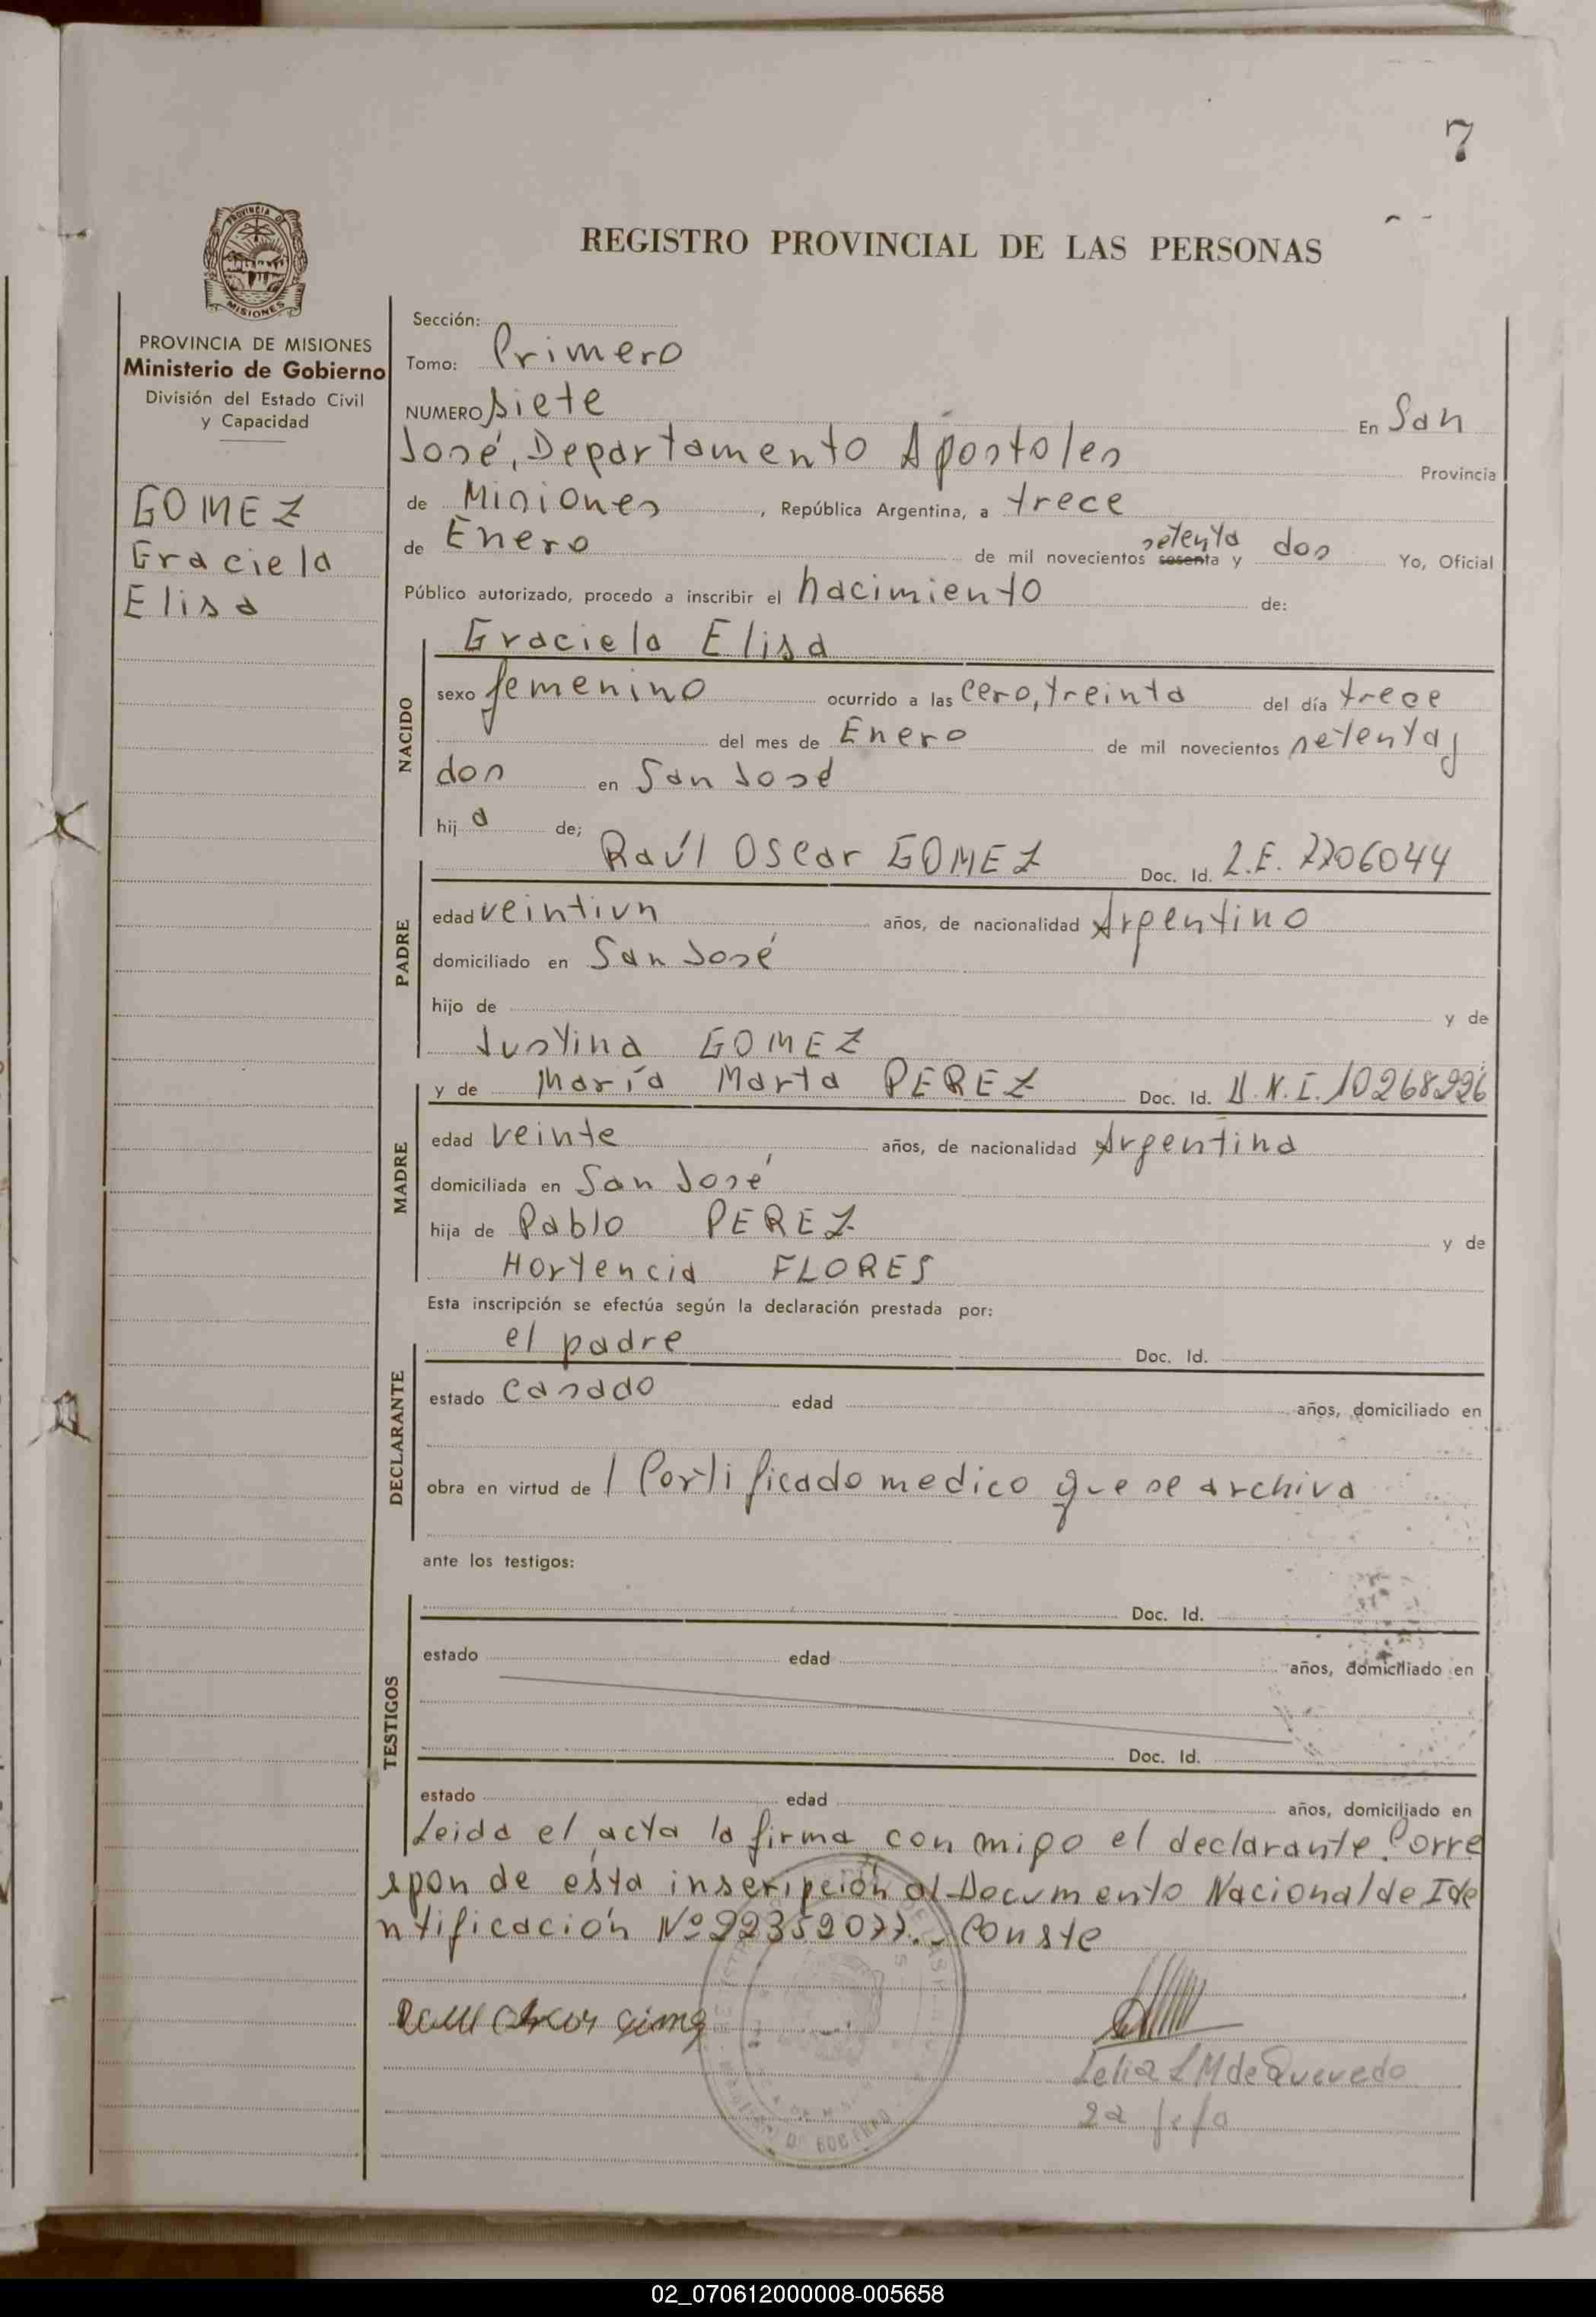 7
REGISTRO PROVINCIAL DE LAS PERSONAS
PROVINCIA DE MISIONES
Ministerio de Gobierno
División del Estado Civil
y Capacidad
GOMEZ
Graciela
Elisa
Sección:
Tomo: Primero
NUMERO siete En San
José, Departamento Apostoles Provincia
de Misiones, República Argentina, a trece
de Enero de mil novecientos setenta y dos Yo, Oficial
Público autorizado, procedo a inscribir el nacimiento de:
NACIDO
Graciela Elisa
sexo femenino ocurrido a las cero, treinta del día trece
del mes de Enero de mil novecientos setenta y
dos en San José
hija de;
PADRE
Raúl Oscar GOMEZ Doc. Id. L.E. 7706044
edad veintiun años, de nacionalidad Argentino
domiciliado en San José
hijo de y de
Justina GOMEZ
MADRE
y de María Marta PEREZ Doc. Id. D.N.I. 10268226
edad veinte años, de nacionalidad Argentina
domiciliada en San José
hija de Pablo PEREZ y de
Hortencia FLORES
Esta inscripción se efectúa según la declaración prestada por:
DECLARANTE
el padre Doc. Id.
estado casado edad años, domiciliado en
obra en virtud de / Certificado medico que se archiva
ante los testigos:
TESTIGOS
Doc. Id.
estado edad años, domiciliado en
Doc. Id.
estado edad años, domiciliado en
Leida el acta la firma con migo el declarante. Corre
spon de esta inscripción al Documento Nacional de Ide
ntificación Nº 22352077.- Conste
Lelia L M de Quevedo
2a Jefa
02_070612000008-005658